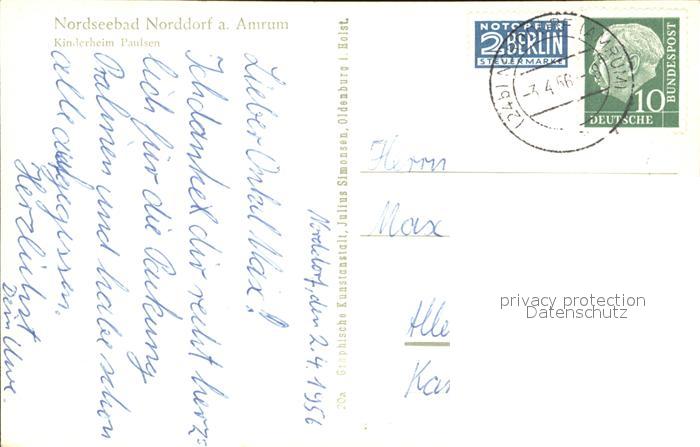 Nordseebad Norddorf a. Amrum
Kinderheim Paulsen
Norddorf, den 2.4.1956
Lieber Onkel Max!
Ich danke dir recht herz-
lich für die Packung
Pralinen und habe schon
alle aufgegessen.
Herzlichst
Dein Uwe.
20a Graphische Kunstanstalt, Julius Simonsen, Oldenburg i. Holst.
NOTOPFER
2 BERLIN
STEUERMARKE
(AMRUM)
-3.4.56
10
DEUTSCHE
BUNDESPOST
Herrn
Max
Alle
Kas
privacy protection
Datenschutz